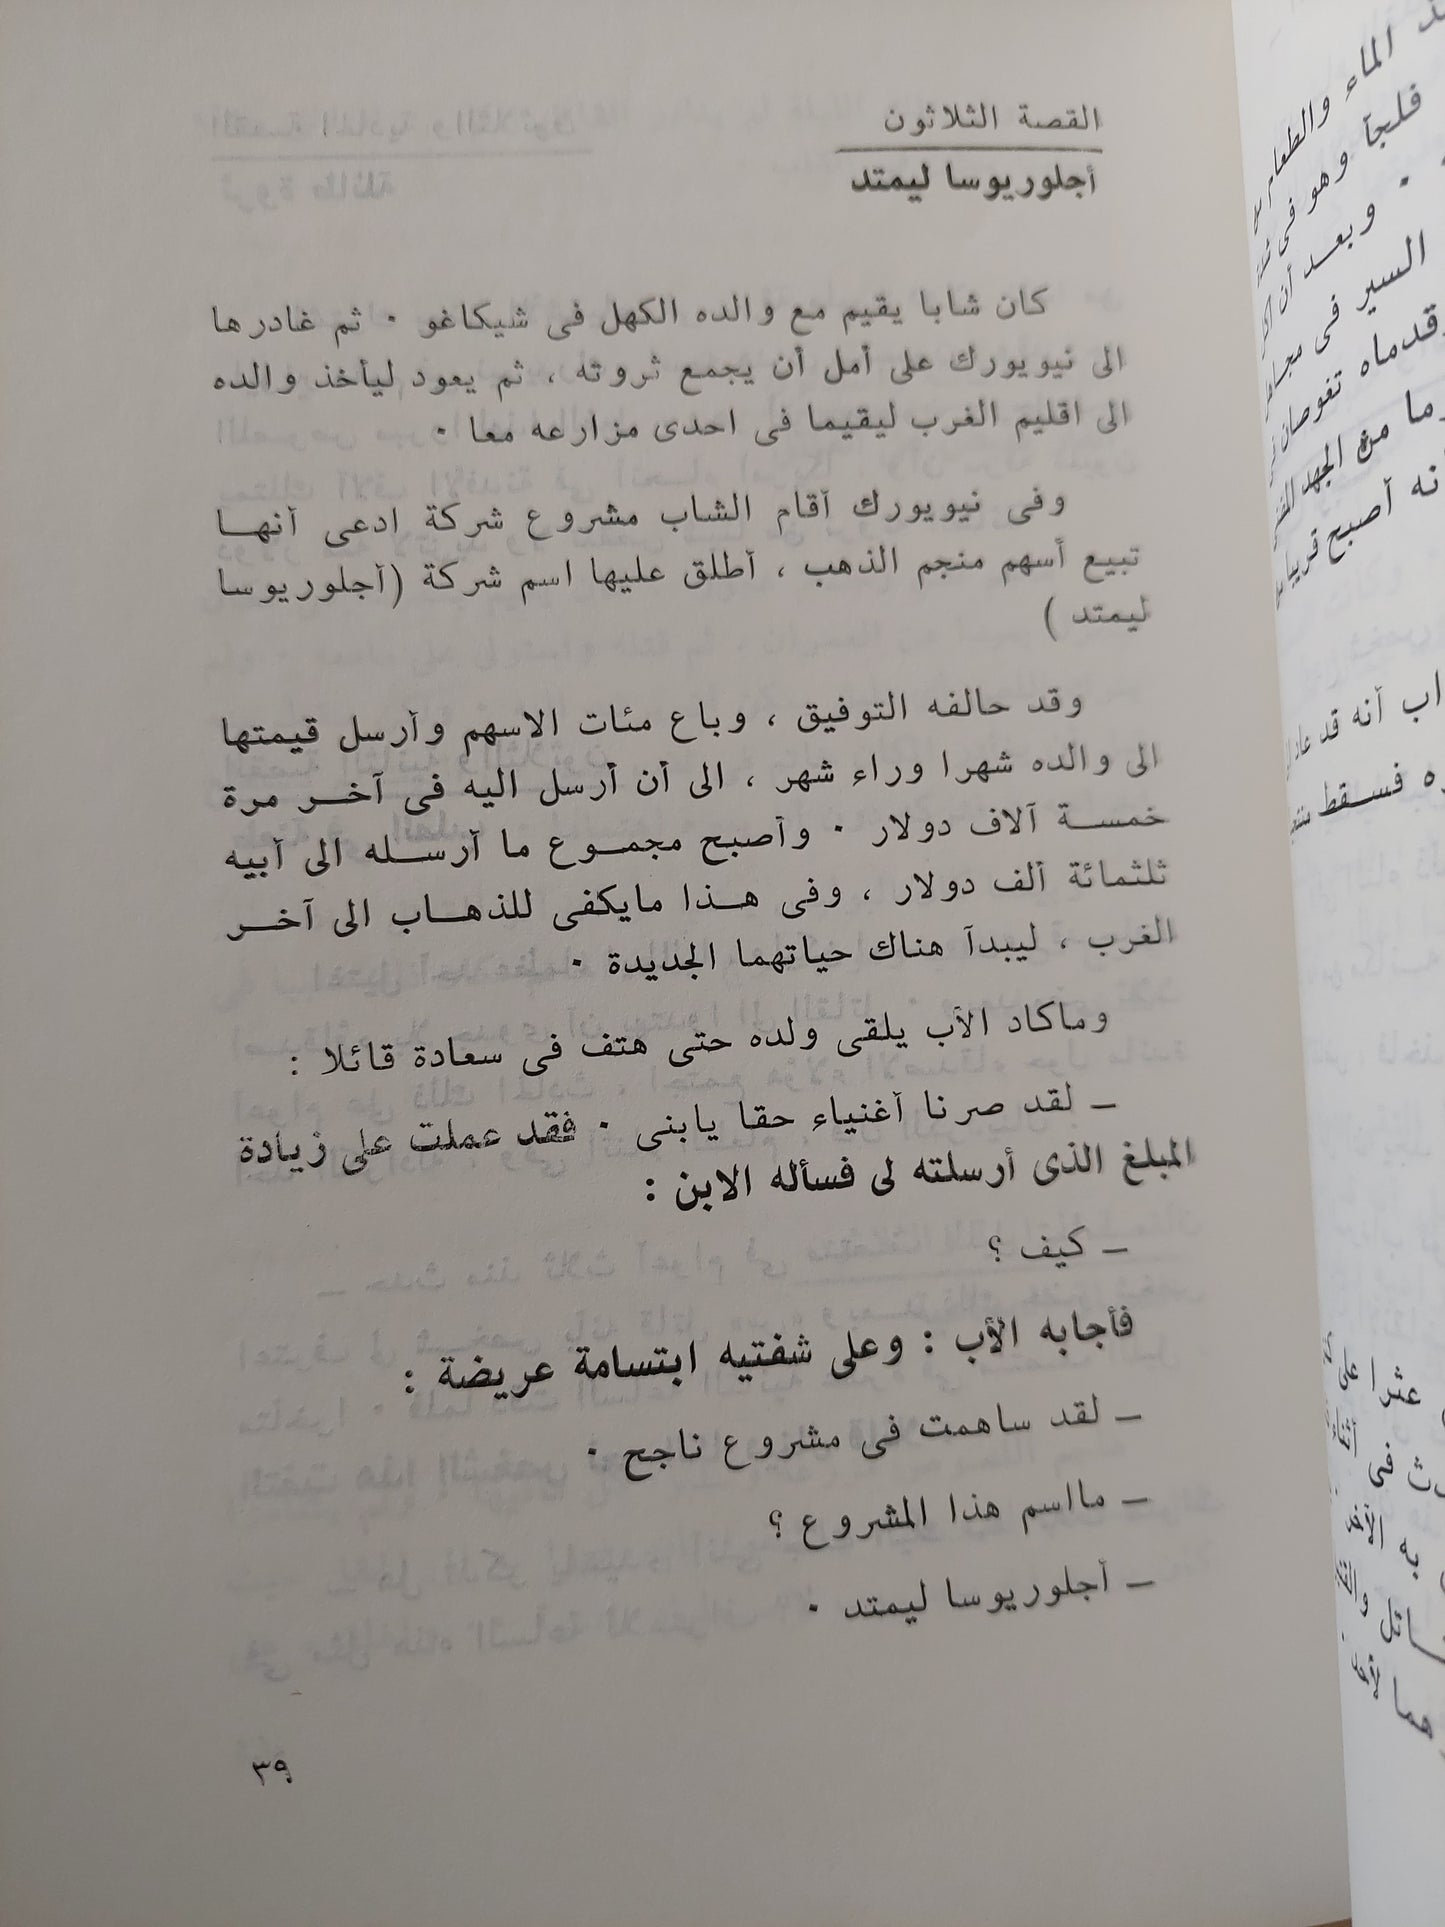 القصة الثلاثون
أجلوريوسا ليمتد
كان شابا يقيم مع والده الكهل فى شيكاغو ٠ ثم غادرها
الى نيويورك على أمل أن يجمع ثروته ، ثم يعود ليأخذ والده
الى اقليم الغرب ليقيما فى احدى مزارعه معا ٠
وفى نيويورك أقام الشاب مشروع شركة ادعى أنها
تبيع أسهم منجم الذهب ، أطلق عليها اسم شركة (أجلوريوسا
ليمتد )
وقد حالفه التوفيق ، وباع مئات الاسهم وأرسل قيمتها
الى والده شهرا وراء شهر ، الى أن أرسل اليه فى آخر مرة
خمسة آلاف دولار ٠ وأصبح مجموع ما أرسله الى أبيه
ثلثمائة ألف دولار ، وفى هذا مايكفى للذهاب الى آخر
الغرب ، ليبدآ هناك حياتهما الجديدة ٠
وماكاد الأب يلقى ولده حتى هتف فى سعادة قائلا :
ـ لقد صرنا أغنياء حقا يابنى ٠ فقد عملت على زيادة
المبلغ الذى أرسلته لى فسأله الابن :
ـ كيف ؟
فأجابه الأب : وعلى شفتيه ابتسامة عريضة :
ـ لقد ساهمت فى مشروع ناجح ٠
ـ مااسم هذا المشروع ؟
ـ أجلوريوسا ليمتد ٠
٣٩
الماء والطعام
فلجأ وهو فى
٠ وبعد أن
السير فى
قدماه تغوصان
من الجهد
أنه أصبح قريبا
أنه قد
فسقط
عثرا على
فى
به